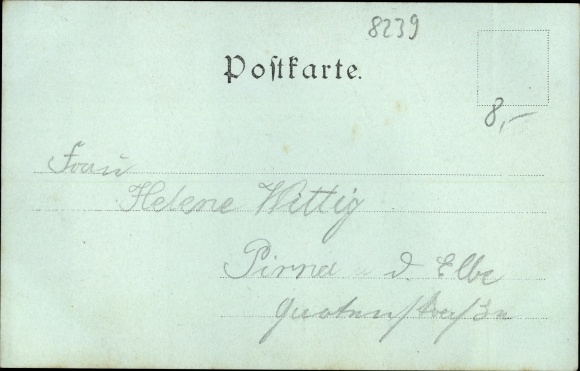 8239
Postkarte.
8,—
Frau
Helene Wittig
Pirna a. d. Elbe